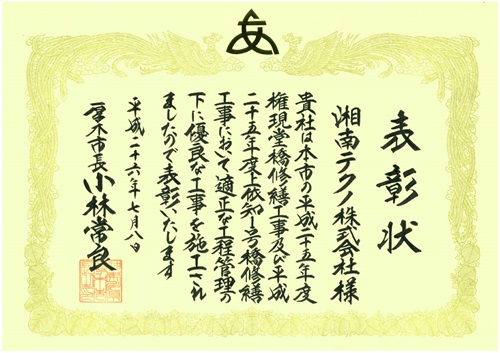 表彰状
湘南テクノ株式会社様
貴社は本市の平成二十五年度
権現堂橋修繕工事及び平成
二十五年度上依知1号橋修繕
工事において適正な工程管理の
下に優良な工事を施工され
ましたので表彰いたします
平成二十六年七月八日
厚木市長 小林常良